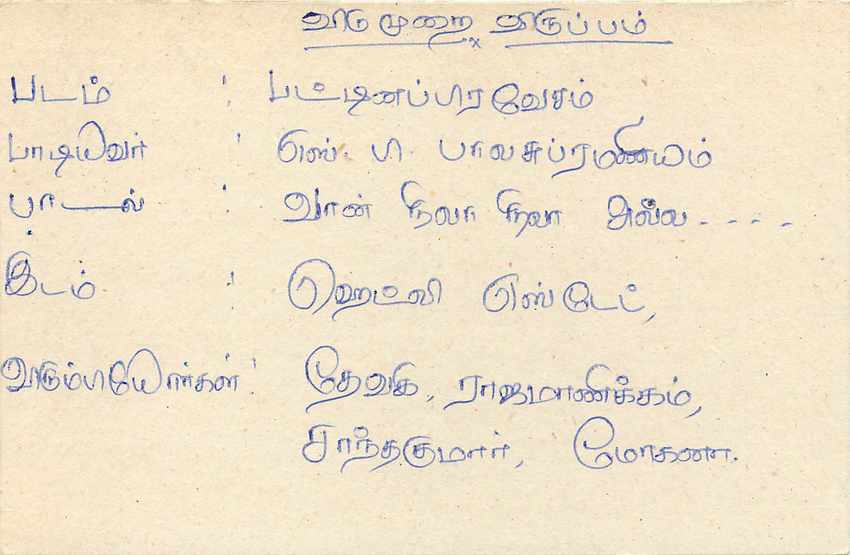 விடுமுறை விருப்பம்
படம் : பட்டினப்பிரவேசம்
பாடியவர் : எஸ். பி. பாலசுப்ரமணியம்
பாடல் : வான் நிலா நிலா அல்ல - - - -
இடம் : எஸ்டேட்,
விரும்பியோர்கள் : தேவகி, ராஜமாணிக்கம்,
சாந்தகுமார், மோகனா.